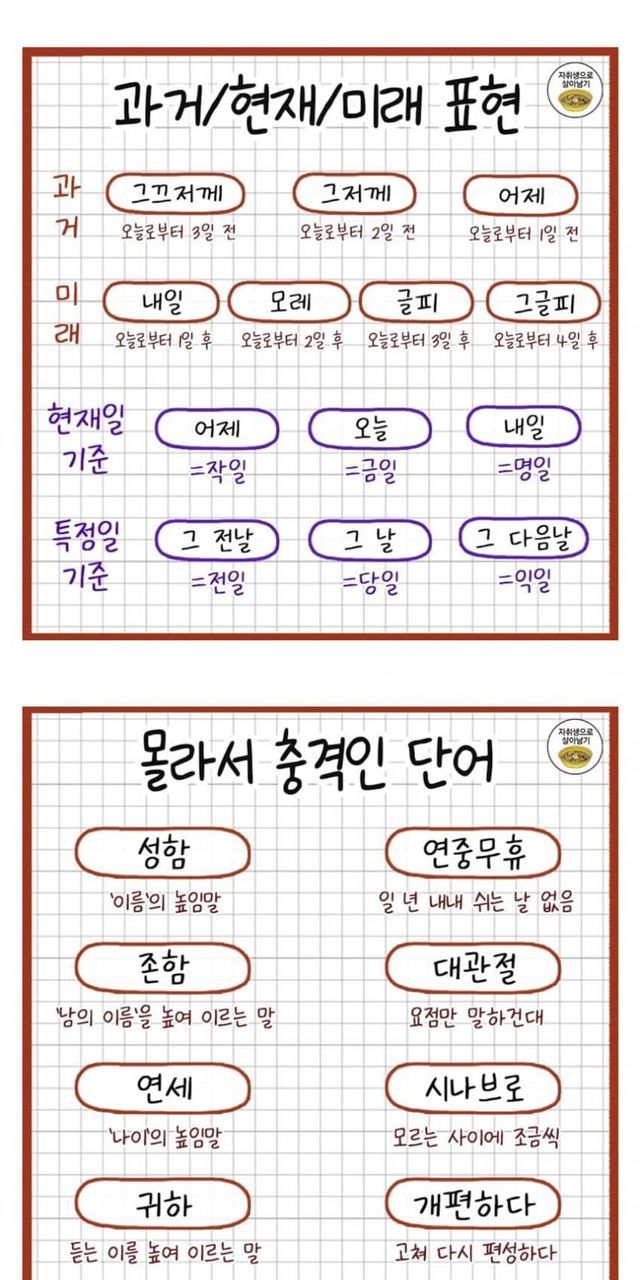 과거/현재/미래 표현
자취생으로
살아남기
과거
그끄저께
그저께
어제
오늘로부터 3일 전
오늘로부터 2일 전
오늘로부터 1일 전
미래
내일
모레
글피
그글피
오늘로부터 1일 후
오늘로부터 2일 후
오늘로부터 3일 후
오늘로부터 4일 후
현재일
기준
어제
오늘
내일
=작일
=금일
=명일
특정일
기준
그 전날
그 날
그 다음날
=전일
=당일
=익일
몰라서 충격인 단어
자취생으로
살아남기
성함
연중무휴
'이름'의 높임말
일 년 내내 쉬는 날 없음
존함
대관절
'남의 이름'을 높여 이르는 말
요점만 말하건대
연세
시나브로
'나이'의 높임말
모르는 사이에 조금씩
귀하
개편하다
듣는 이를 높여 이르는 말
고쳐 다시 편성하다